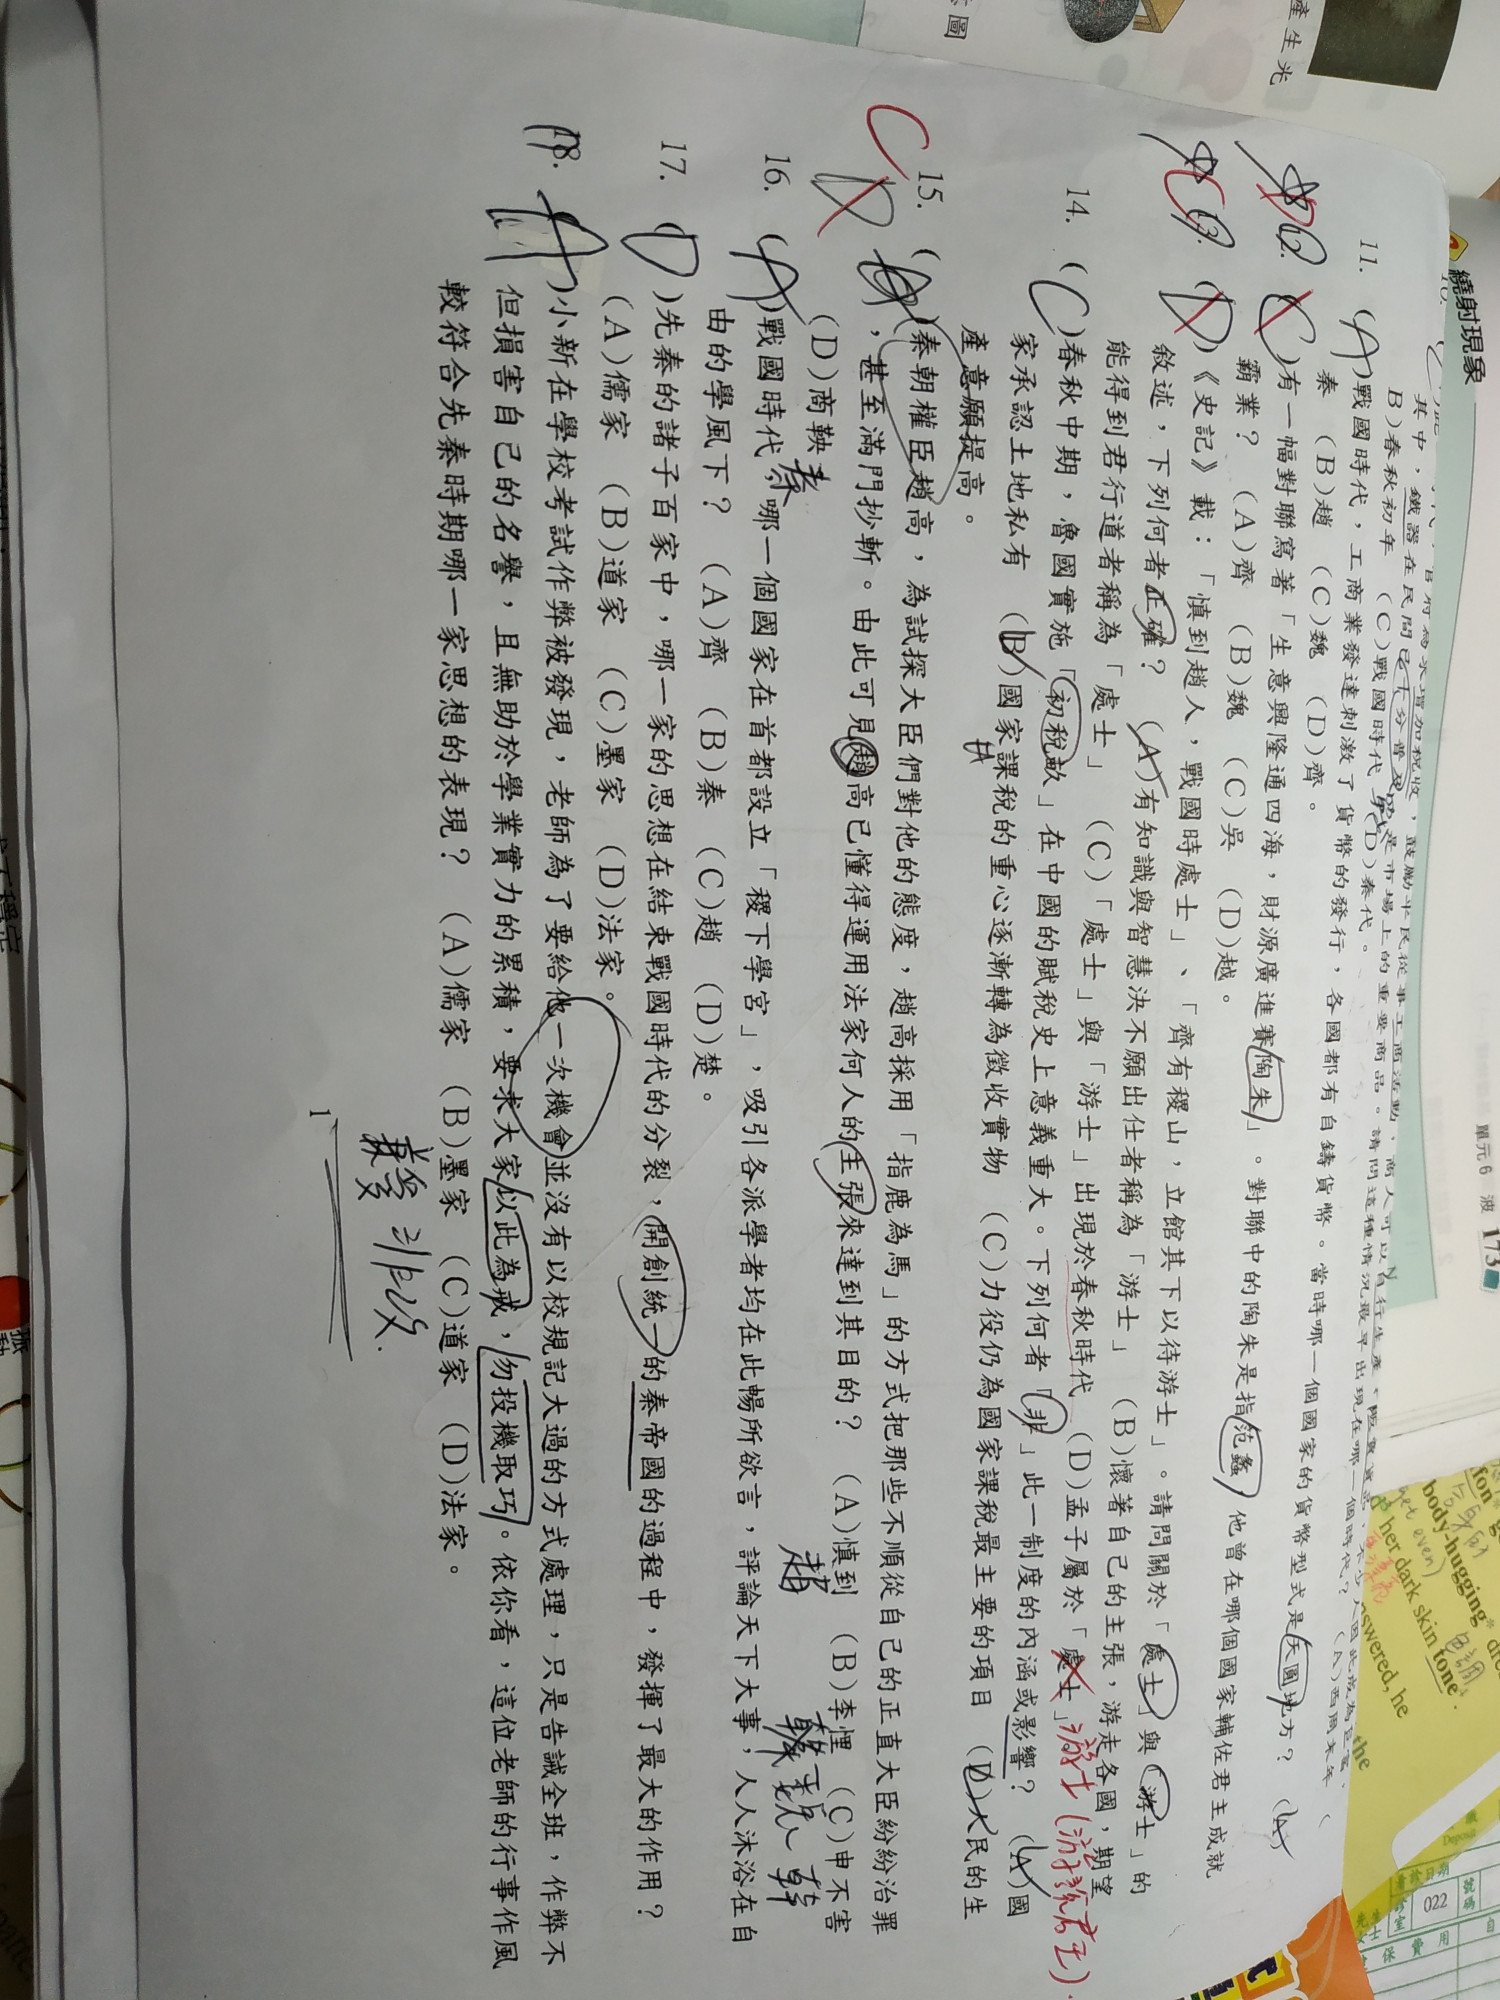 繞射現象
單元 6 波 173
產生光
圖
其中，鐵器在民間已十分普及，是市場上的重要商品。請問這種情況最早出現在哪一個時代？ (A)西周末年
B)春秋初年 (C)戰國時代 (D)秦代。
11. (A)戰國時代，工商業發達刺激了貨幣的發行，各國都有自鑄貨幣。當時哪一個國家的貨幣型式是天圓地方？ (A)
秦 (B)趙 (C)魏 (D)齊。
12. (C)有一幅對聯寫著「生意興隆通四海，財源廣進賽陶朱」。對聯中的陶朱是指范蠡，他曾在哪個國家輔佐君主成就
霸業？ (A)齊 (B)魏 (C)吳 (D)越。
C 13. (D)《史記》載：「慎到趙人，戰國時處士」、「齊有稷山，立館其下以待游士」。請問關於「處士」與「游士」的
敘述，下列何者正確？ (A)有知識與智慧決不願出仕者稱為「游士」 (B)懷著自己的主張，游走各國，期望
能得到君行道者稱為「處士」 (C)「處士」與「游士」出現於春秋時代 (D)孟子屬於「處士」
游士(游說君王).
14. (C)春秋中期，魯國實施「初稅畝」在中國的賦稅史上意義重大。下列何者「非」此一制度的內涵或影響？ (A)國
家承認土地私有 (B)國家課稅的重心逐漸轉為徵收實物 (C)力役仍為國家課稅最主要的項目 (D)人民的生
產意願提高。
C D
15. ( )秦朝權臣趙高，為試探大臣們對他的態度，趙高採用「指鹿為馬」的方式把那些不順從自己的正直大臣紛紛治罪
，甚至滿門抄斬。由此可見趙高已懂得運用法家何人的主張來達到其目的？ (A)慎到 (B)李悝 (C)申不害
(D)商鞅
秦 趙 魏 韓
16. (A)戰國時代，哪一個國家在首都設立「稷下學宮」，吸引各派學者均在此暢所欲言，評論天下大事，人人沐浴在自
由的學風下？ (A)齊 (B)秦 (C)趙 (D)楚。
17. (D)先秦的諸子百家中，哪一家的思想在結束戰國時代的分裂，開創統一的秦帝國的過程中，發揮了最大的作用？
(A)儒家 (B)道家 (C)墨家 (D)法家。
18. (A)小新在學校考試作弊被發現，老師為了要給他一次機會並沒有以校規記大過的方式處理，只是告誡全班，作弊不
但損害自己的名譽，且無助於學業實力的累積，要求大家以此為戒，勿投機取巧。依你看，這位老師的行事作風
較符合先秦時期哪一家思想的表現？ (A)儒家 (B)墨家 (C)道家 (D)法家。
非攻.
1
body-hugging
her dark skin tone
answered, he
the
022
費用